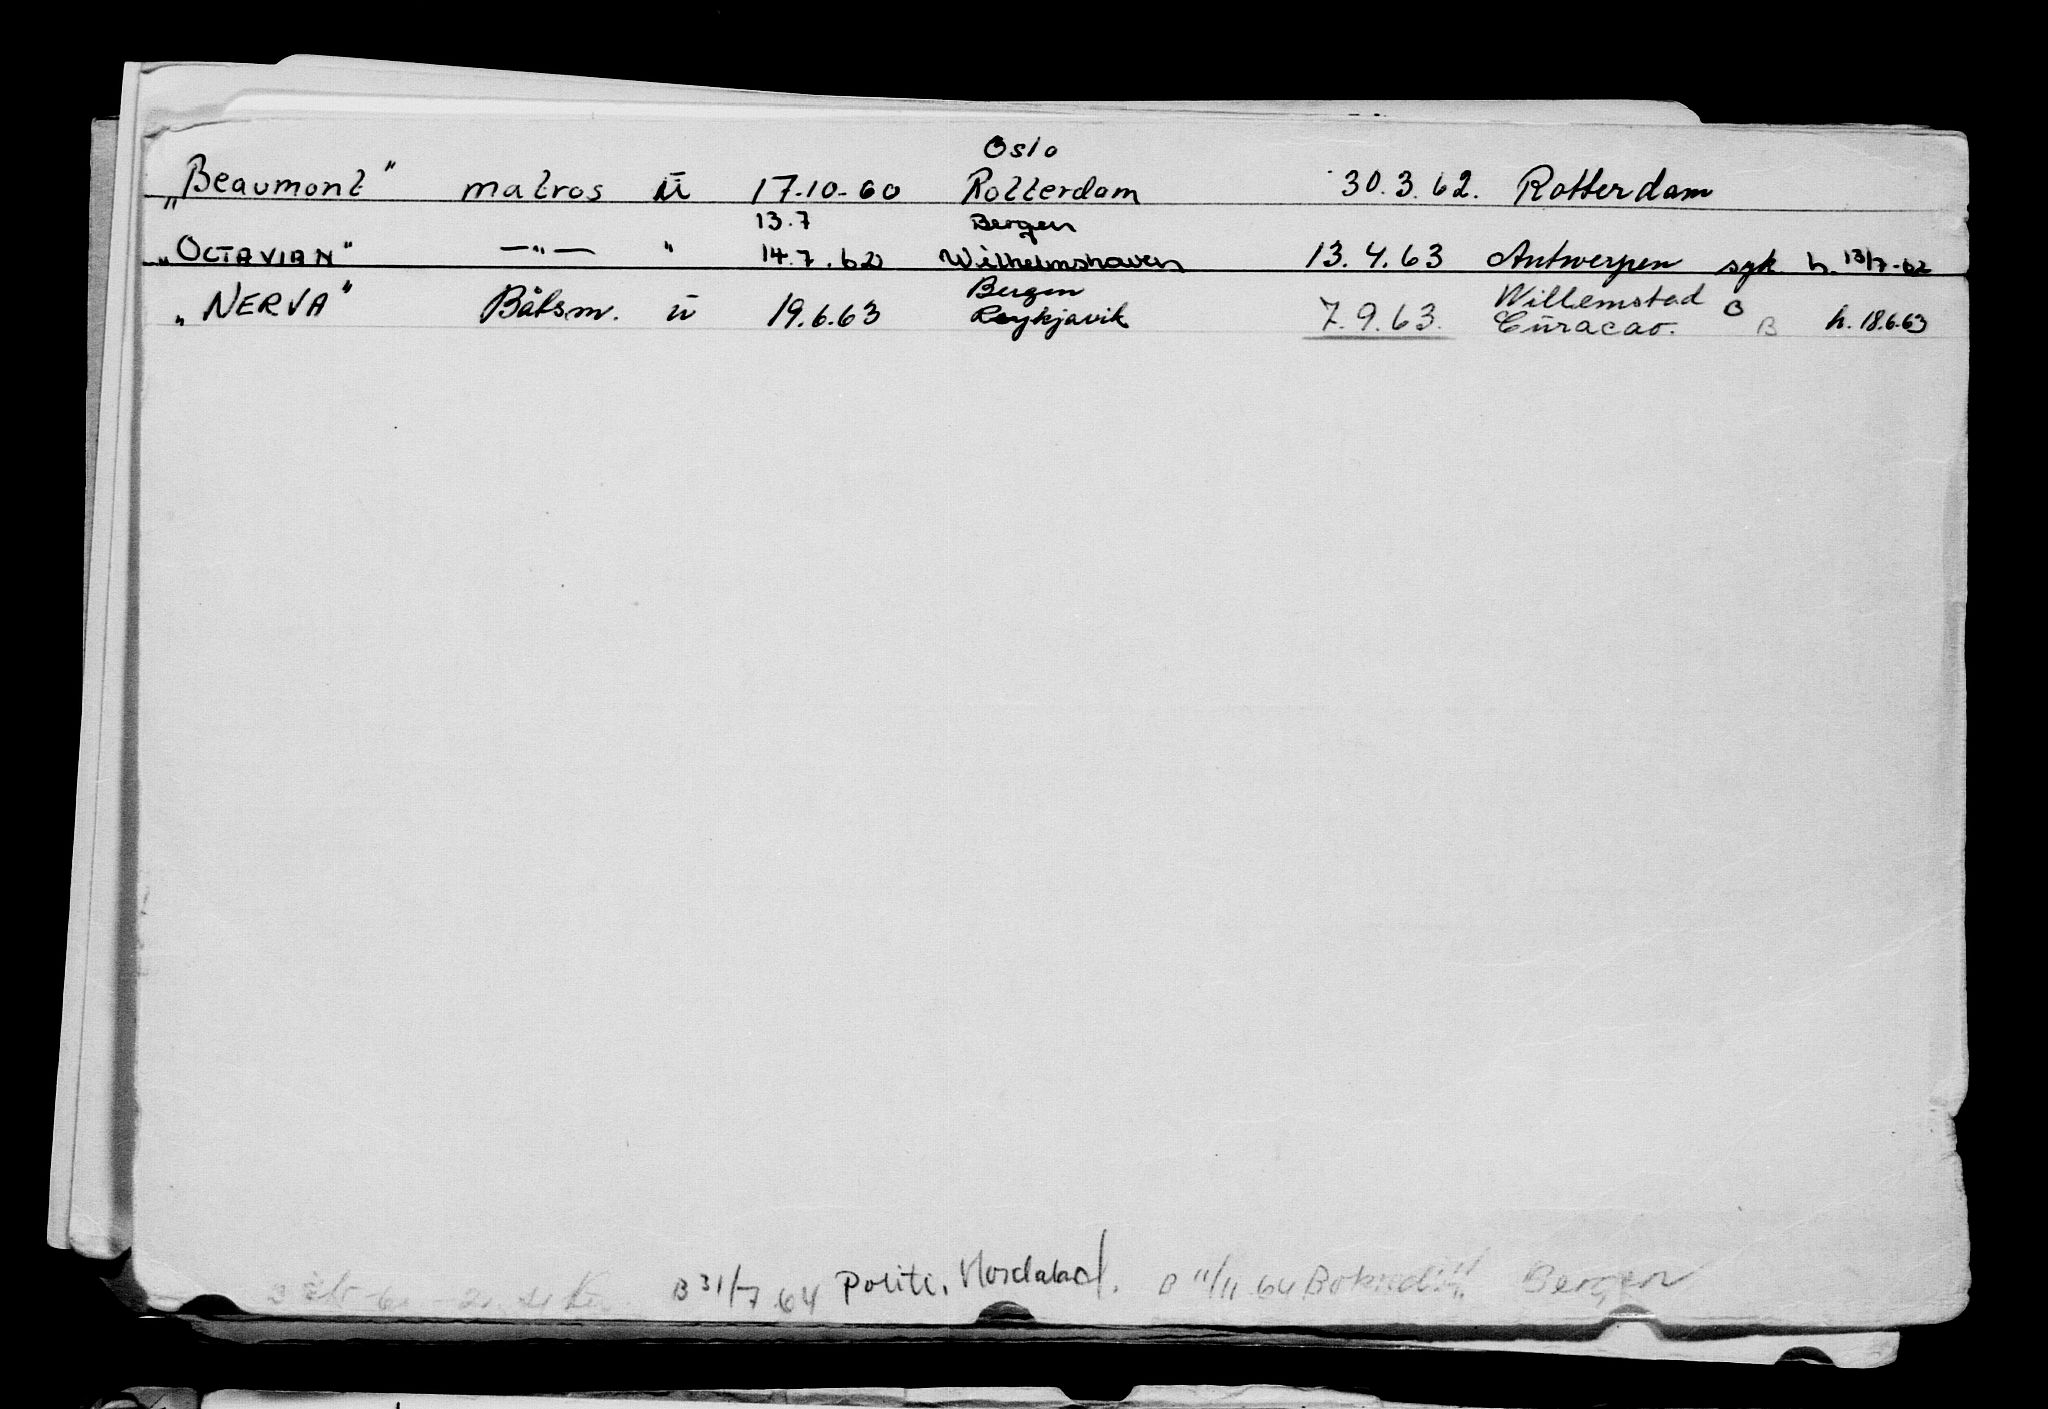 Oslo
„Beaumont" matros ü 17-10-60 Rotterdam 30.3.62. Rotterdam
13.7 Bergen
„OCTAVIAN" —„— " 14.7.62 Wilhelmshaven 13.4.63 Antwerpen syk h. 13/7-62
Bergen Willemstad B
„NERVA" Båtsm. ü 19.6.63 Reykjavik 7.9.63. Curacao. B h. 18.6.63
B 31/7 64 Politi, Hordaland. B 11/11 64 Bergen